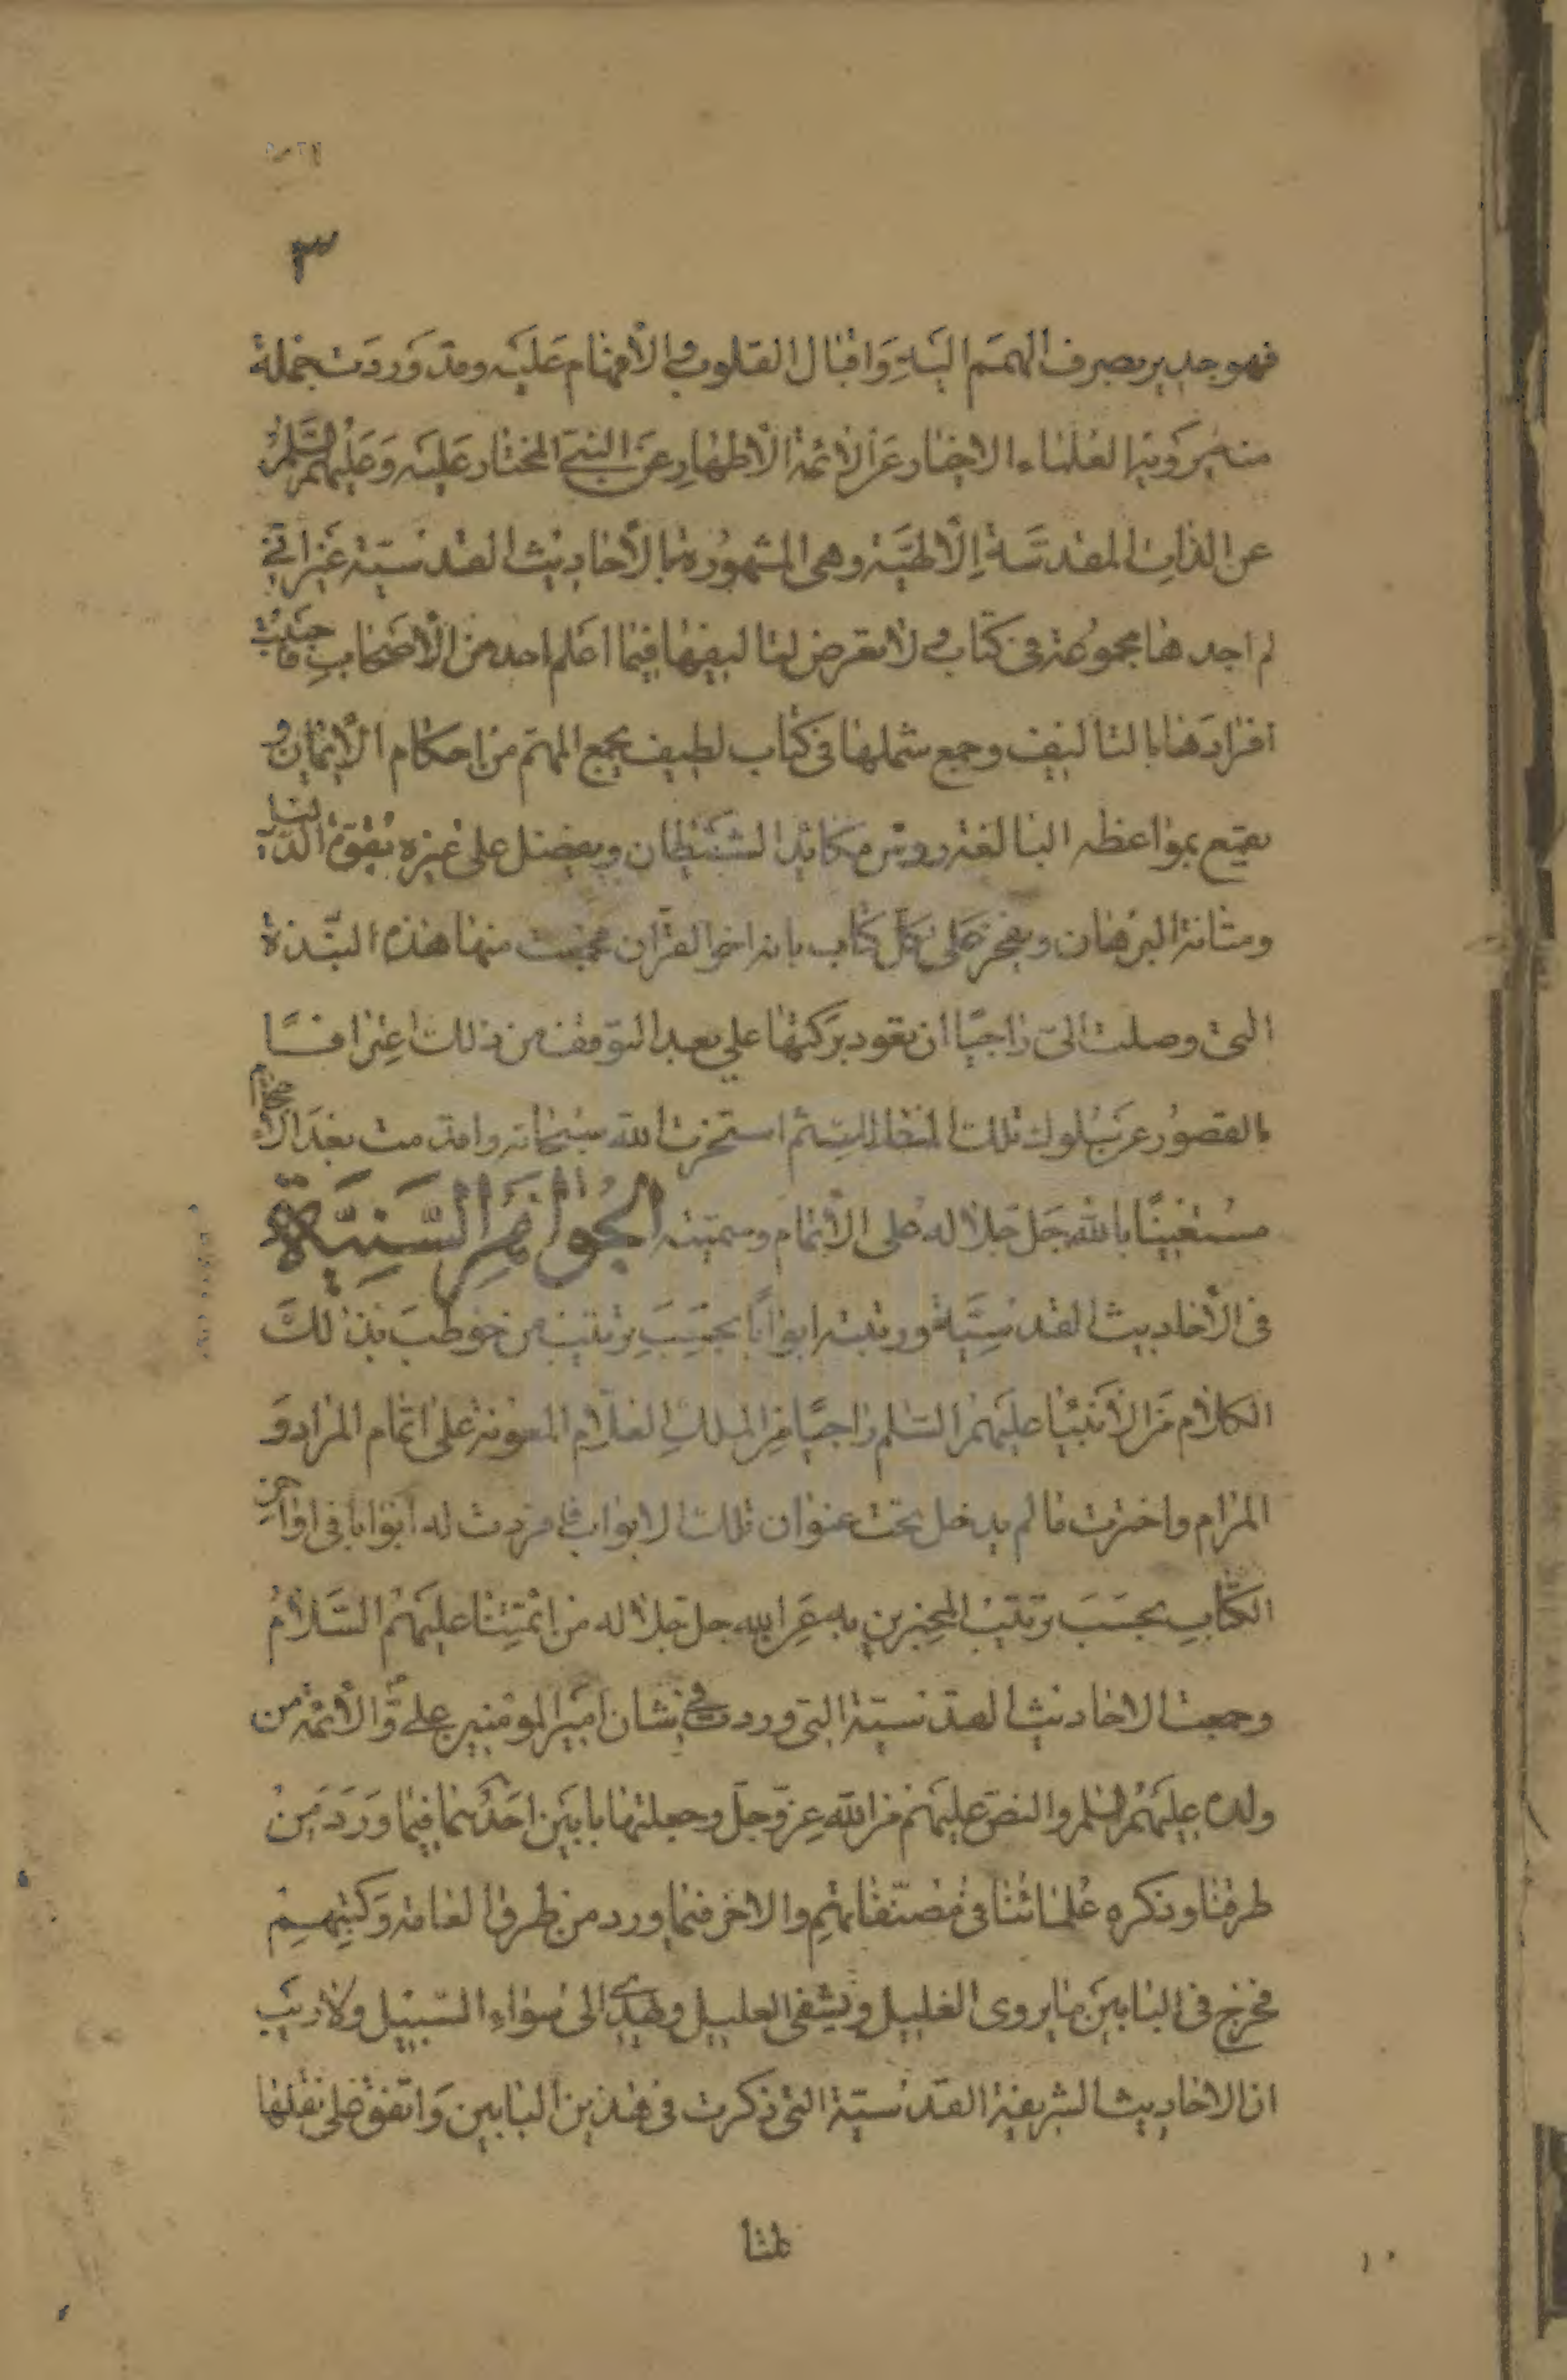 ٣
فهو جدير بصرف الهمم اليه واقبال القلوب والافهام عليه وقد وردت جملة
منه يرويها العلماء الاخيار عن الائمة الاطهار عن النبي المختار عليه وعليهم السلم
عن الذات المقدسة الالهية وهي المشهورة بالاحاديث القدسية غير اني
لم اجدها مجموعة في كتاب ولا تعرض لتاليفها فيما اعلم احد من الاصحاب فاحببت
افرادها بالتاليف وجمع شملها في كتاب لطيف يجمع المهم من احكام الايمان و
يقمع بمواعظه البالغة رؤس مكائد الشيطان ويفضل على غيره بقوة الدلالة
ومتانة البرهان ويفخر على كل كتاب بانه اخو القرآن فجمعت منها هذه النبذة
التي وصلت الي راجيا ان تعود بركتها علي بعد التوقف من ذلك اعترافا
بالقصور عن سلوك تلك المسالك ثم استخرت الله سبحانه واقدمت بعد الاحجام
مستعينا بالله جل جلاله على الاتمام وسميته الجواهر السنية
في الاحاديث القدسية ورتبته ابوابا بحسب ترتيب من خوطب بذلك
الكلام من الانبيا عليهم السلم راجيا من الملك العلام المعونة على اتمام المراد و
المرام واخترت ما لم يدخل تحت عنوان تلك الابواب فافردت له ابوابا في اواخر
الكتاب بحسب ترتيب المخبرين به عن الله جل جلاله من ائمتنا عليهم السلام
وجمعت الاحاديث القدسية التي وردت في شان امير المومنين علي والائمة من
ولده عليهم السلم والنص عليهم من الله عز وجل وجعلتها بابين احدهما فيما ورد من
طرقنا وذكره علمائنا في مصنفاتهم والاخر فيما ورد من طرق العامة وكتبهم
فخرج في البابين ما يروى الغليل ويشفى العليل ويهدي الى سواء السبيل ولا ريب
ان الاحاديث الشريفة القدسية التي ذكرت في هذين البابين واتفق على نقلها